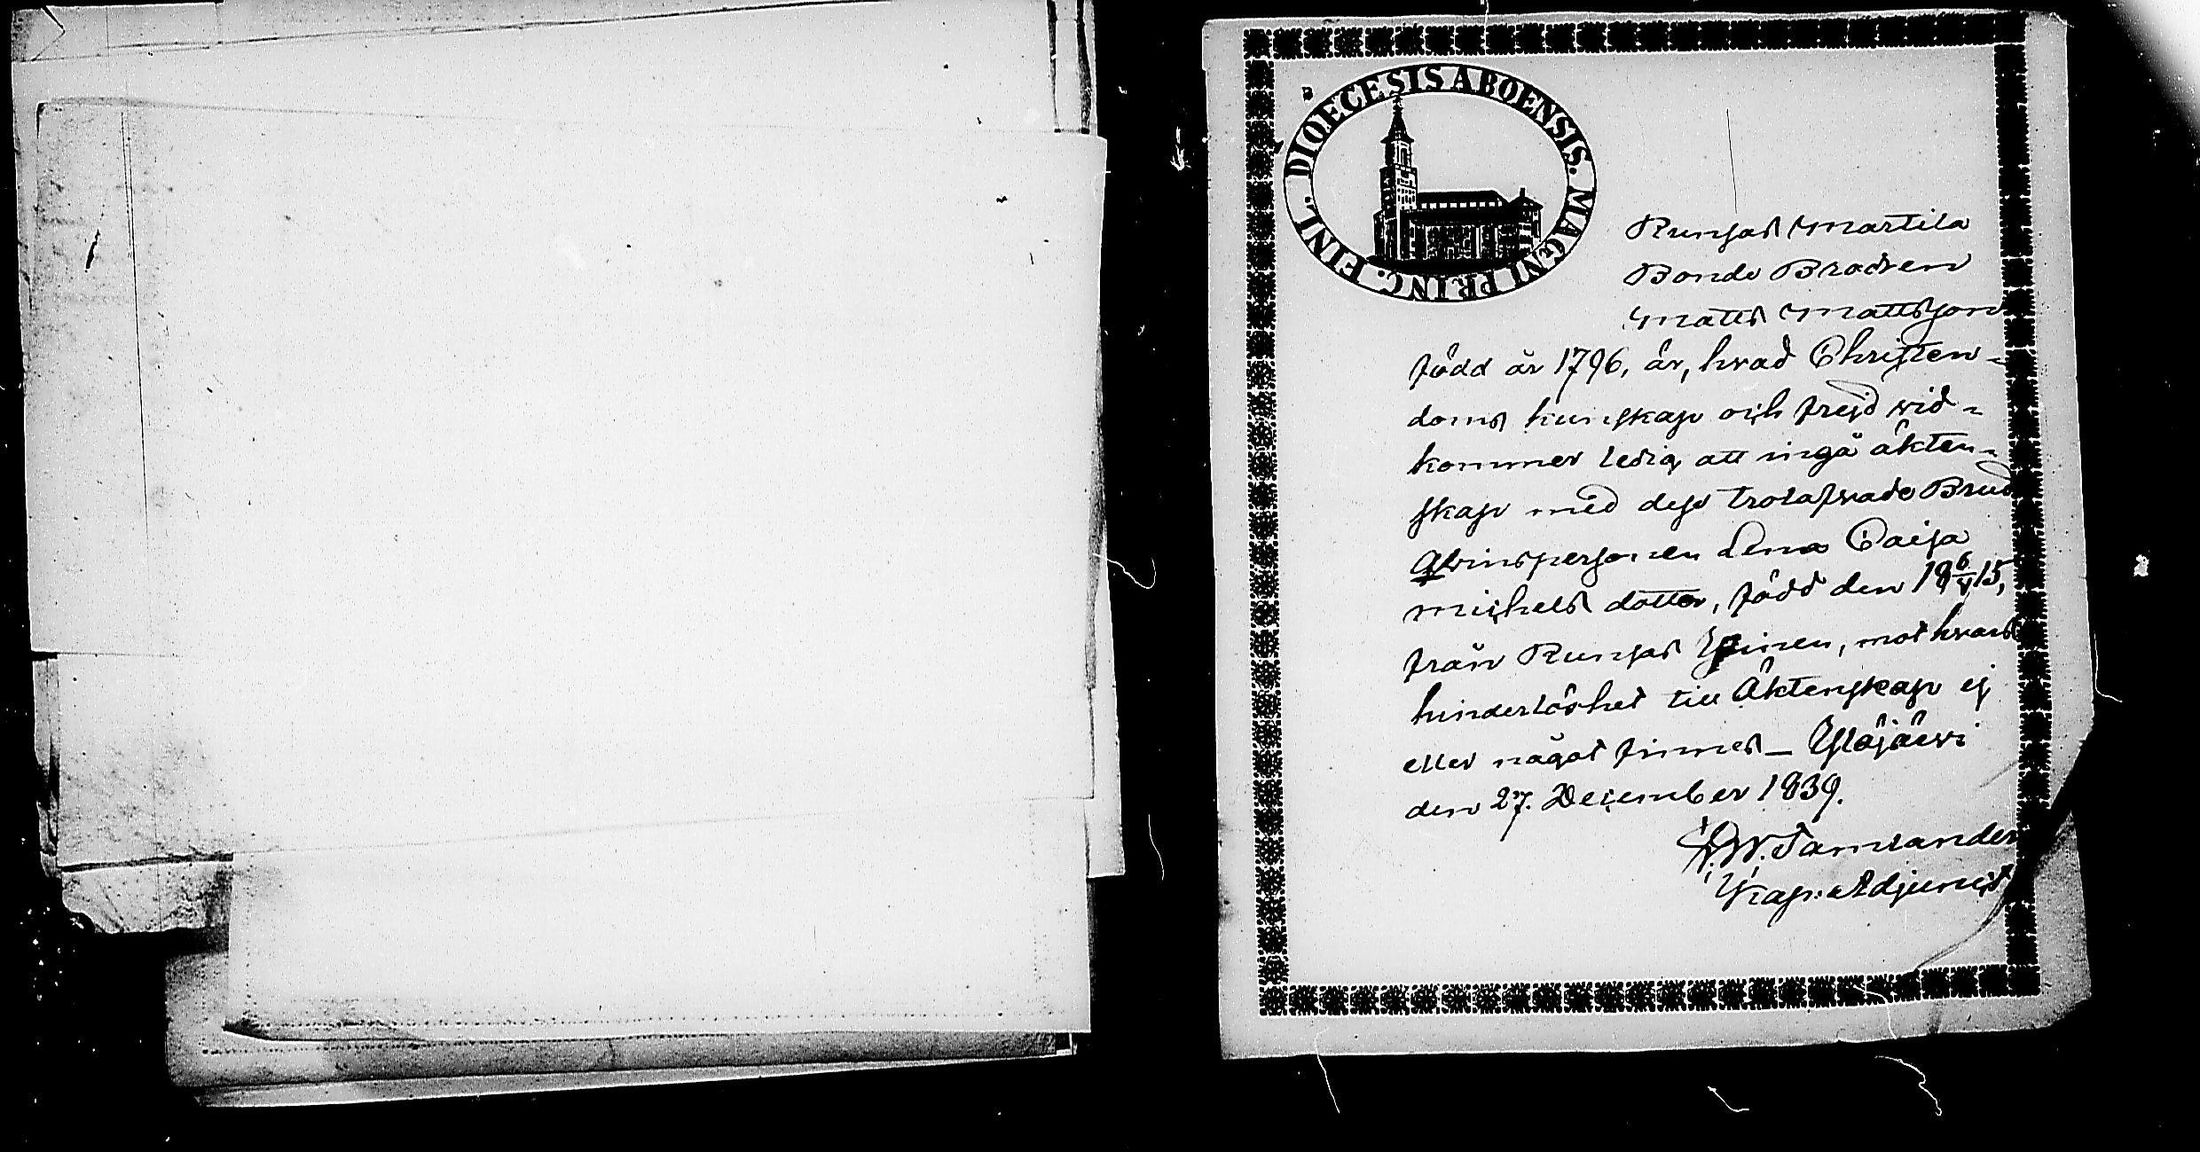 DIOECESIS ABOENSIS. MAGNI PRINC. FINL.
Runsas Martila
Bonde Brodren
Matts Mattsson
född år 1796, är, hvad Christen-
doms kunskap och frejd vid-
kommer ledig att ingå äkten-
skap med dess trolofvade Brud
Qvinspersonen Lena Caisa
Michels dotter, född den 18 6/V 15,
från Runsas, mot hvars
hinderlöshet till Äktenskap ej
eller något finnes _ Ylöjärvi
den 27. December 1839.
W. Tamlander
Kap: Adjunct